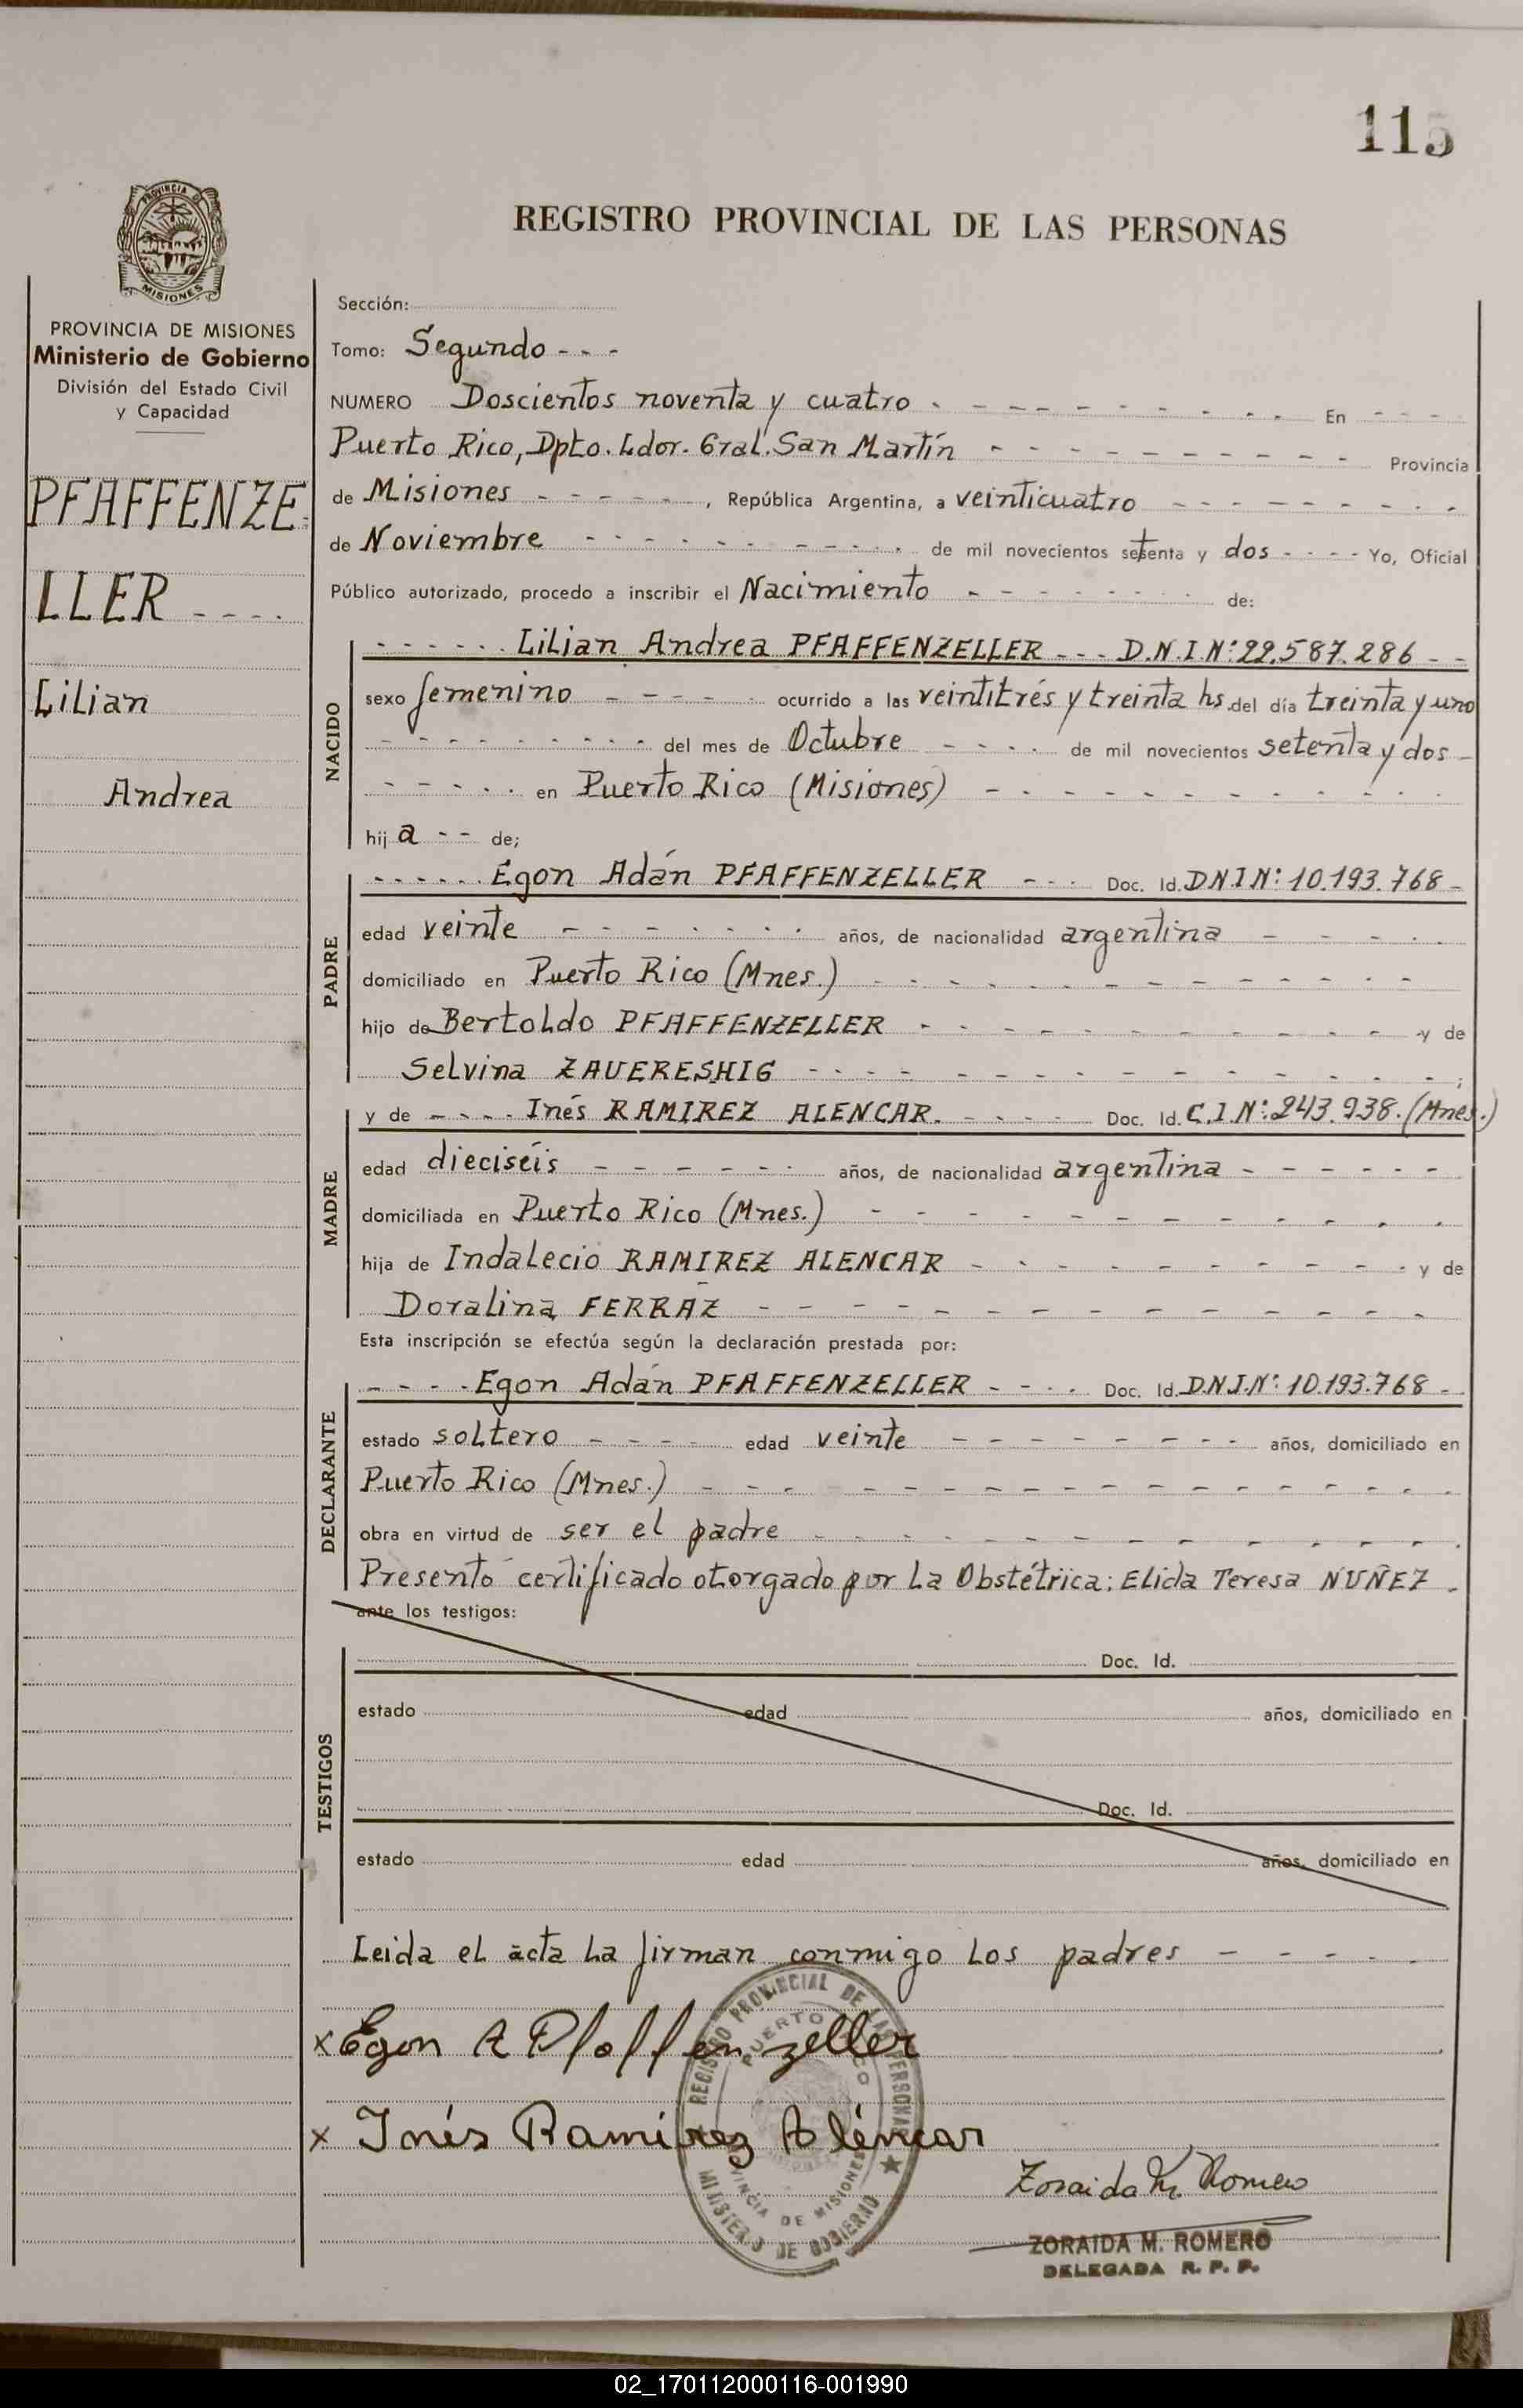 115
REGISTRO PROVINCIAL DE LAS PERSONAS
PROVINCIA DE MISIONES
Ministerio de Gobierno
División del Estado Civil
y Capacidad
PFAFFENZE
LLER
Lilian
Andrea
Sección:
Tomo: Segundo - - -
NUMERO Doscientos noventa y cuatro - - - En - - -
Puerto Rico, Dpto. Ldor. Gral. San Martín - - - Provincia
de Misiones - - - , República Argentina, a veinticuatro - - -
de Noviembre - - - de mil novecientos setenta y dos - - - Yo, Oficial
Público autorizado, procedo a inscribir el Nacimiento - - - de:
NACIDO
- - - Lilian Andrea PFAFFENZELLER - - - D.N.I.N°: 22.587.286 - -
sexo femenino - - - ocurrido a las veintitrés y treinta hs. del día treinta y uno
- - - del mes de Octubre - - - de mil novecientos setenta y dos -
- - - en Puerto Rico (Misiones) - - -
hij a - - de;
PADRE
- - - Egon Adán PFAFFENZELLER - - - Doc. Id. DNI N°: 10.193.768 -
edad veinte - - - años, de nacionalidad argentina - - -
domiciliado en Puerto Rico (Mnes.) - - -
hijo de Bertoldo PFAFFENZELLER - - - y de
Selvina ZAUERESHIG - - - ;
MADRE
y de - - - Inés RAMIREZ ALENCAR. - - - Doc. Id. C.I.N°: 243.938. (Mnes.)
edad dieciseis - - - años, de nacionalidad argentina - - -
domiciliada en Puerto Rico (Mnes.) - - -
hija de Indalecio RAMIREZ ALENCAR - - - y de
Doralina FERRAZ - - -
Esta inscripción se efectúa según la declaración prestada por:
DECLARANTE
- - - Egon Adán PFAFFENZELLER - - - Doc. Id. D.N.I.N°: 10.193.768 -
estado soltero - - - edad veinte - - - años, domiciliado en
Puerto Rico (Mnes.) - - -
obra en virtud de ser el padre - - -
Presentó certificado otorgado por la Obstétrica: Elida Teresa NUÑEZ -
ante los testigos:
TESTIGOS
Doc. Id.
estado edad años, domiciliado en
Doc. Id.
estado edad años, domiciliado en
Leida el acta la firman conmigo los padres - - -
x Egon A Pfaffenzeller
x Inés Ramírez Aléncar
REGISTRO PROVINCIAL DE LAS PERSONAS
PUERTO RICO
PROVINCIA DE MISIONES
MINISTERIO DE GOBIERNO
Zoraida M. Romero
ZORAIDA M. ROMERO
DELEGADA R. P. P.
02_170112000116-001990